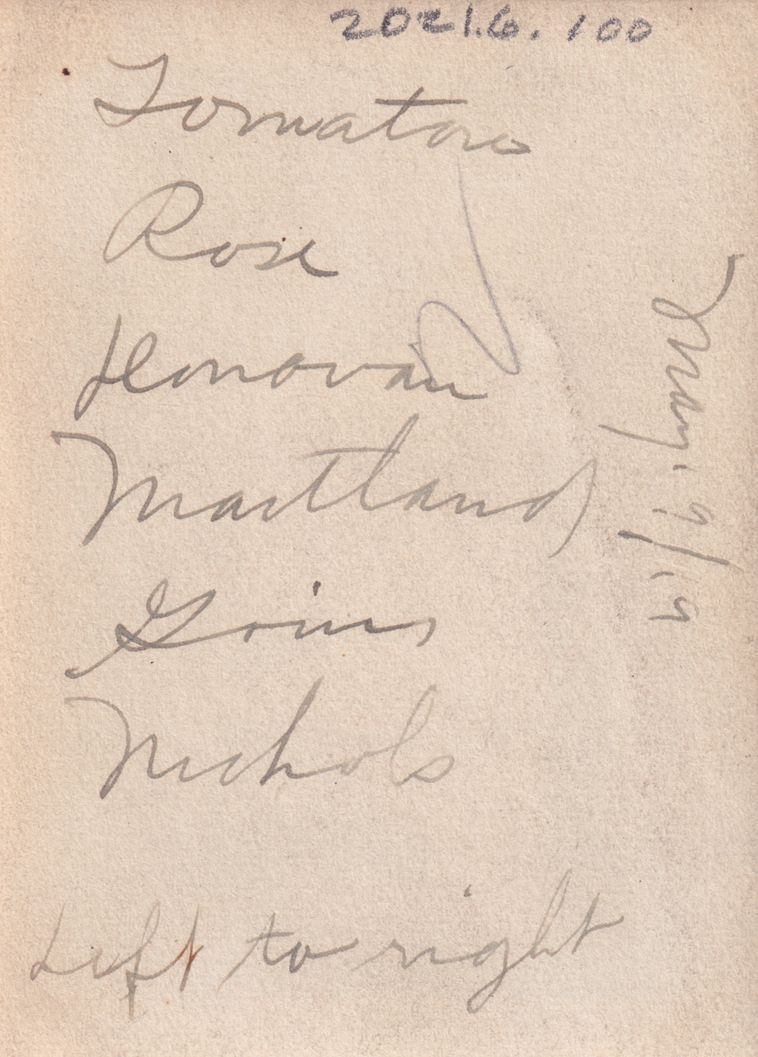 2021.6.100
Rose
Donovan
Maitland
Goins
Nichols
Left to right
May. 9/19